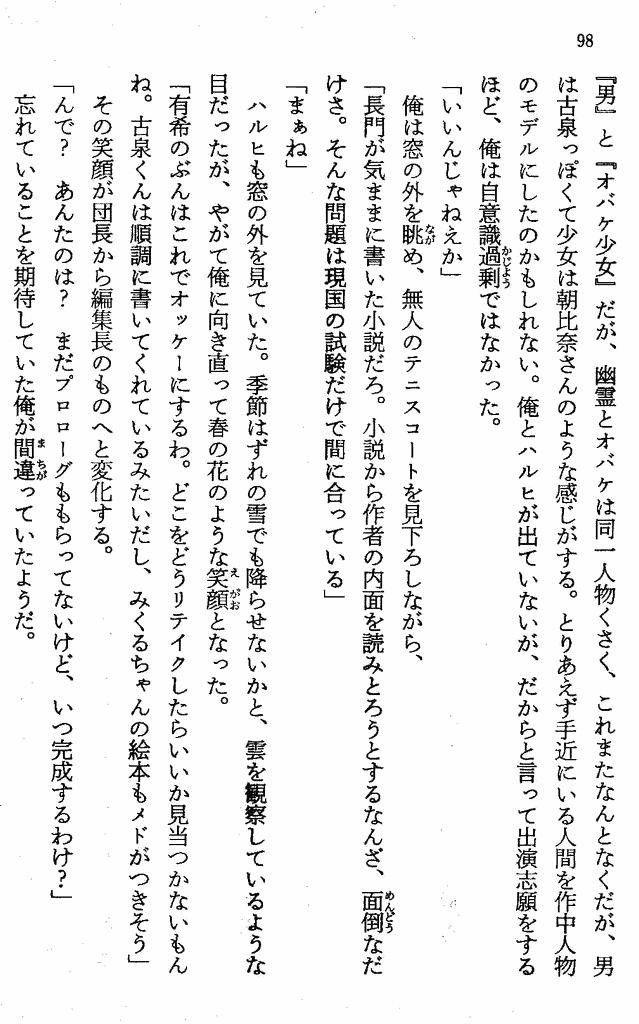 98
『男』と『オバケ少女』だが、幽霊とオバケは同一人物くさく、これまたなんとなくだが、男
は古泉っぽくて少女は朝比奈さんのような感じがする。とりあえず手近にいる人間を作中人物
のモデルにしたのかもしれない。俺とハルヒが出ていないが、だからと言って出演志願をする
ほど、俺は自意識過剰ではなかった。
「いいんじゃねえか」
俺は窓の外を眺め、無人のテニスコートを見下ろしながら、
「長門が気ままに書いた小説だろ。小説から作者の内面を読みとろうとするなんざ、面倒なだ
けさ。そんな問題は現国の試験だけで間に合っている」
「まぁね」
ハルヒも窓の外を見ていた。季節はずれの雪でも降らせないかと、雲を観察しているような
目だったが、やがて俺に向き直って春の花のような笑顔となった。
「有希のぶんはこれでオッケーにするわ。どこをどうリテイクしたらいいか見当つかないもん
ね。古泉くんは順調に書いてくれているみたいだし、みくるちゃんの絵本もメドがつきそう」
その笑顔が団長から編集長のものへと変化する。
「んで？　あんたのは？　まだプロローグももらってないけど、いつ完成するわけ？」
忘れていることを期待していた俺が間違っていたようだ。